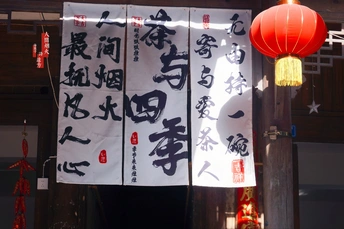 无由持一碗
寄与爱茶人
茶与四季
人间烟火
最抚凡人心